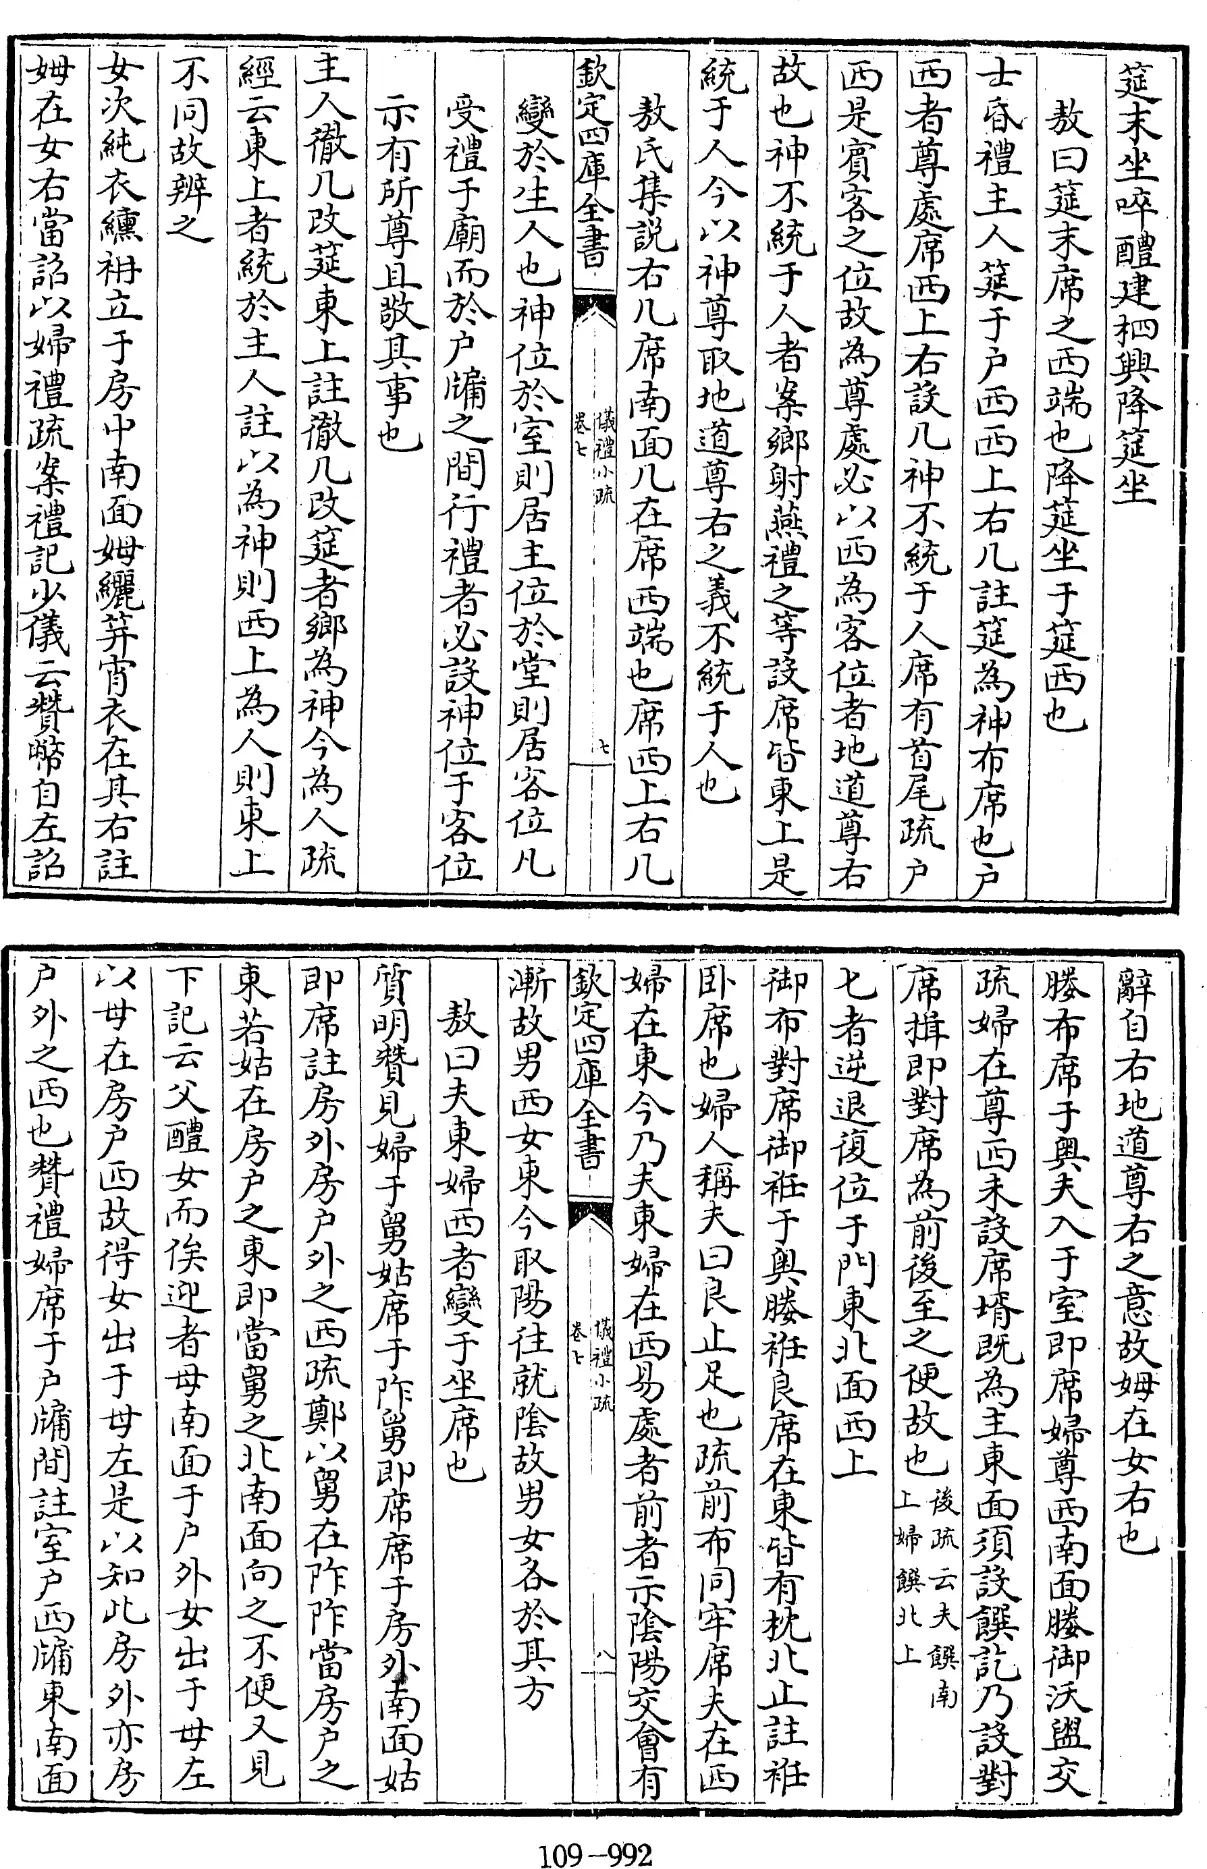 筵末坐啐醴建柶興降筵坐
敖曰筵末席之西端也降筵坐于筵西也
士昏禮主人筵于户西西上右几註筵為神布席也户
西者尊處席西上右設几神不統于人席有首尾疏户
西是賓客之位故為尊處必以西為客位者地道尊右
故也神不統于人者案鄉射燕禮之等設席皆東上是
統于人今以神尊取地道尊右之義不統于人也
敖氏集説右几席南面几在席西端也席西上右几
欽定四庫全書
儀禮小疏
卷七
七
變於生人也神位於室則居主位於堂則居客位凡
受禮于廟而於户牖之間行禮者必設神位于客位
示有所尊且敬其事也
主人徹几改筵東上註徹几改筵者鄉為神今為人疏
經云東上者統於主人註以為神則西上為人則東上
不同故辨之
女次純衣纁袡立于房中南面姆纚笄宵衣在其右註
姆在女右當詔以婦禮疏案禮記少儀云贊幣自左詔
辭自右地道尊右之意故姆在女右也
媵布席于奥夫入于室即席婦尊西南面媵御沃盥交
疏婦在尊西未設席壻既為主東面須設饌訖乃設對
席揖即對席為前後至之便故也
後疏云夫饌南
上婦饌北上
七者逆退復位于門東北面西上
御布對席御衽于奥媵衽良席在東皆有枕北止註衽
卧席也婦人稱夫曰良止足也疏前布同牢席夫在西
婦在東今乃夫東婦在西易處者前者示陰陽交會有
欽定四庫全書
儀禮小疏
卷七
八
漸故男西女東今取陽往就陰故男女各於其方
敖曰夫東婦西者變于坐席也
質明贊見婦于舅姑席于阼舅即席席于房外南面姑
即席註房外房户外之西疏鄭以舅在阼阼當房户之
東若姑在房户之東即當舅之北南面向之不便又見
下記云父醴女而俟迎者母南面于户外女出于母左
以母在房户西故得女出于母左是以知此房外亦房
户外之西也贊禮婦席于户牖間註室户西牖東南面
109-992